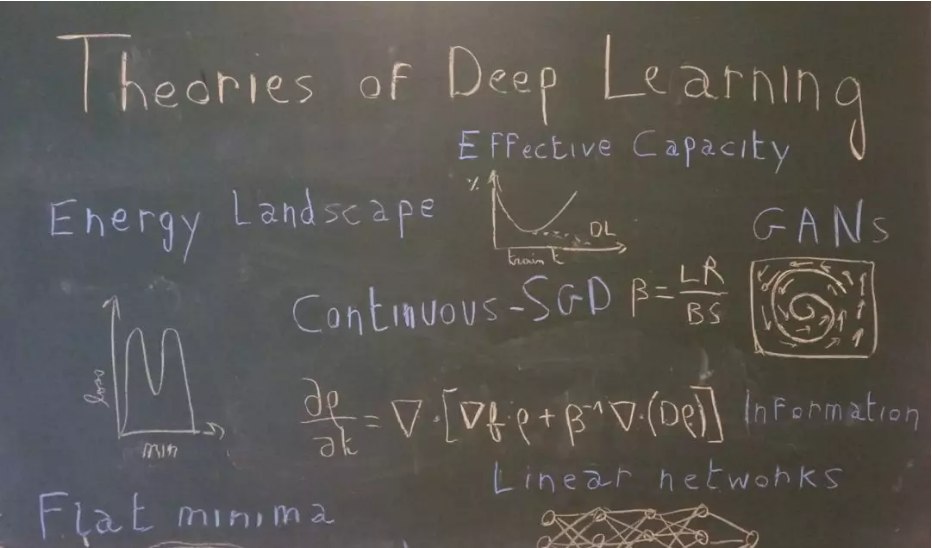 Theories of Deep Learning
Effective Capacity
%
Energy Landscape
DL
train t
GANs
Continuous-SGD β = LR/BS
loss
min
∂ρ/∂t = ∇·[∇f·ρ + β⁻¹∇·(Dρ)]
Information
Linear networks
Flat minima